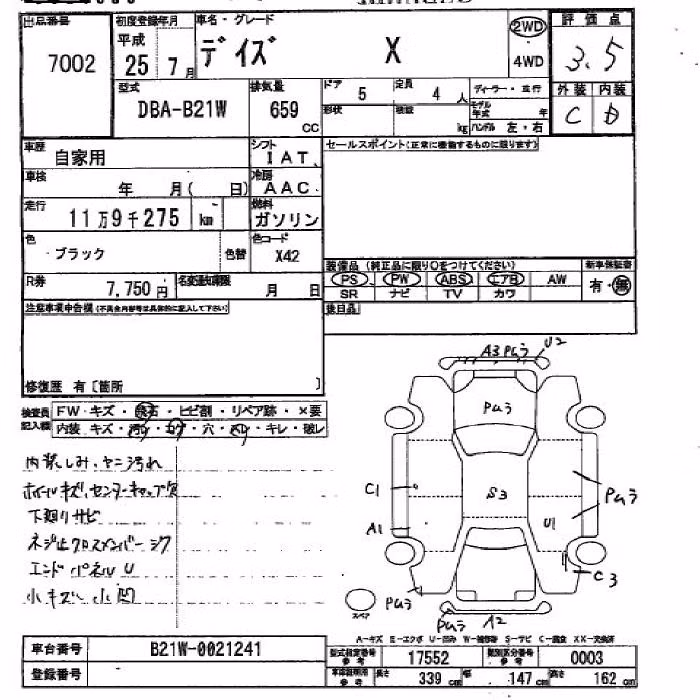 出品番号 7002
初度登録年月 平成 25年 7月
車名・グレード デイズ X
2WD
4WD
評価点 3.5
外装 内装
C D
型式 DBA-B21W
排気量 659 CC
ドア 5
定員 4人
形状
積載 kg
ディーラー・並行
モデル年式 年
ハンドル 左・右
車歴 自家用
シフト IAT
セールスポイント(正常に機能するものに限ります)
車検 年 月( 日)
冷房 AAC
走行 11万9千275 km
燃料 ガソリン
色 ブラック
色替
色コード X42
R券 7,750円
名変通知期限 月 日
装備品 (純正品に限り○をつけてください)
新車保証書
PS PW ABS エアB AW
有・無
SR ナビ TV カワ
後日品
注意事項申告欄(不具合内容等は具体的に記入して下さい)
修復歴 有〔箇所 〕
検査員記入欄
FW キズ・飛石・ヒビ割・リペア跡・×要
内装 キズ・汚れ・コゲ・穴・スレ・キレ・破レ
内装しみ、ヤニ汚れ
ホイールキズ、センターキャップ欠
下廻りサビ
ネジ止クロスメンバーシワ
エンドパネルU
小キズ・小凹
A3 Pムラ U2
Pムラ
C1
S3
Pムラ
A1
U1
C3
スペア
Pムラ
Pムラ
A2
A-キズ E-エクボ U-凹み W-補修跡 S-サビ C-腐食 XX-交換済
車台番号 B21W-0021241
型式指定番号 参考 17552
類別区分番号 参考 0003
登録番号
車庫証明用 参考 長さ 339 cm 幅 147 cm 高さ 162 cm